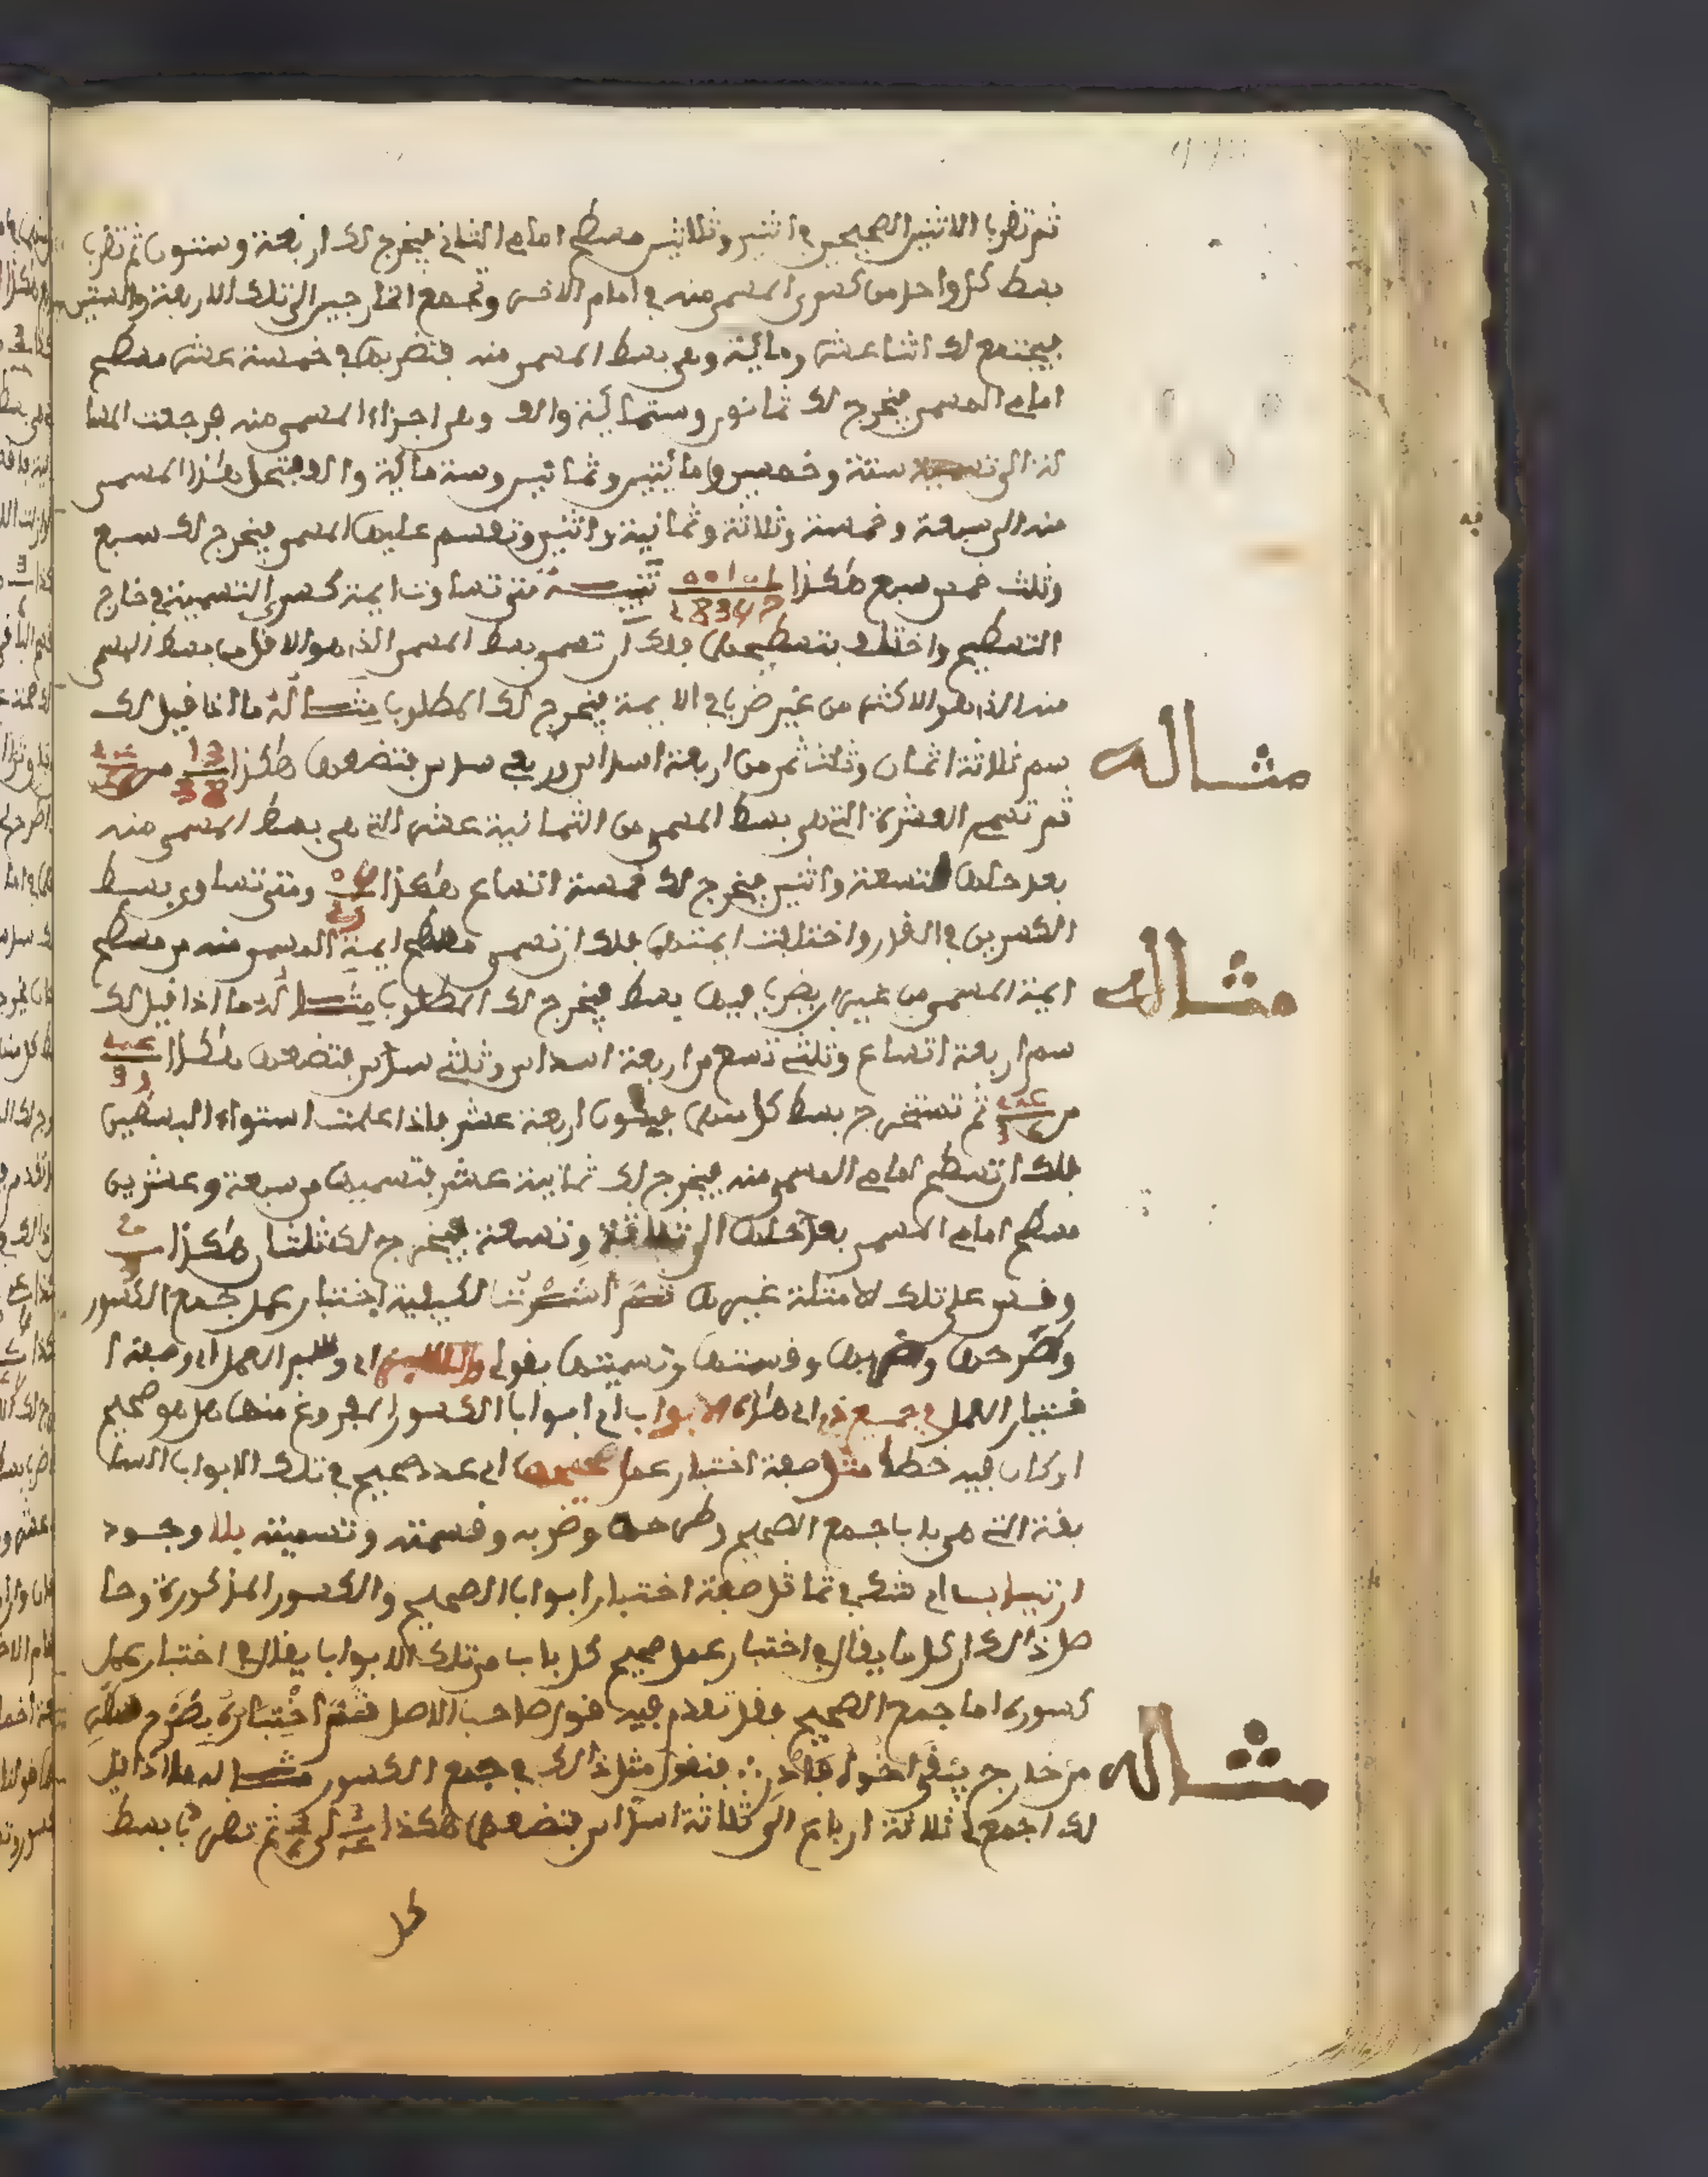 ثم تضرب الاثنين الصحيحين في اثنين وثلاثين مسطح امام الثاني فيخرج لك اربعة وستون ثم تضرب
بسط كل واحد من كسور المسمى منه في امام الاخر وتجمع الخارجين الى تلك الاربعة والستين
فيجتمع لك اثنا عشر ومائة وهى بسط المسمى منه فتضربها في خمسة عشر مسطح
امام المسمى فيخرج لك ثمانون وستمائة والف وهى اجزاء المسمى منه فرجعت المسا
لة الى تسمية ستة وخمسين ومائتين من ثمانين وستمائة والف فتحل هذا المسمى
منه الى سبعة وخمسة وثلاثة وثمانية واثنين وتقسم عليها المسمى فيخرج لك سبع
وثلث خمس سبع هكذا تنبيه متى تساوت ايمة كسرى التسمية في خارج
التسطيح واختلف بسطهما فلك ان تسمي بسط المسمى الذي هو الاقل من بسط المسمى
منه الذي هو الاكثر من غير ضرب في الايمة فيخرج لك المطلوب مثاله ما اذا قيل لك
سم ثلاثة اثمان وثلث ثمن من اربعة اسداس وربعي سدس فتضعها هكذا 13/38 من
ثم تسمي العشرة التي هي بسط المسمى من الثمانية عشر التي هي بسط المسمى منه
بعد حلها لتسعة واثنين فيخرج لك خمسة اتساع هكذا ومتى تساوى بسط
الكسرين في القدر واختلفت ايمتها فلك ان تسمي مسطح ايمة المسمى منه من مسطح
ايمة المسمى من غير ان يضرب فيها بسط فيخرج لك المطلوب مثاله ما اذا قيل لك
سم اربعة اتساع وثلثي تسع من اربعة اسداس وثلثي سدس فتضعها هكذا
من ثم تستخرج بسط كل منهما فيكون اربعة عشر فاذا علمت استواء البسطين
فلك ان تسطح امام المسمى منه فيخرج لك ثمانية عشر فتسميها من سبعة وعشرين
مسطح امام المسمى بعد حلها الى ثلاثة وتسعة فيخرج لك ثلثان هكذا
وقس على تلك الامثلة غيرها ثم اشرت لكيفية اختبار عمل جمع الكسور
وطرحها وضربها وقسمتها وتسميتها بقولي اي وعلم العمل اي وصفة ا
ختبار العمل في جميع ذي اي هذه الابواب اي ابواب الكسور المفروغ منها هل هو صحيح
او كان فيه خطأ مثل صفة اختبار عمل صحيحها اي عدد صحيح في تلك الابواب السا
بقة التي هي باب جمع الصحيح وطرحه وضربه وقسمته وتسميته بلا وجود
ارتياب اي شك في تماثل صفة اختبار ابواب الصحيح والكسور المذكورة وحا
صل ذالك ان كل ما يقال في اختبار عمل صحيح كل باب من تلك الابواب يقال في اختبار عمل
كسوره اما جمع الصحيح فقد تقدم فيه قول صاحب الاصل فتم اختباره بطرح
من خارج يبقى اخو فنقول مثل ذالك في جمع الكسور مثاله ما اذا قيل
لك اجمع ثلاثة ارباع الى ثلاثة اسداس فتضعهما هكذا الى ثم تضرب بسط
كل
مثاله
مثاله
مثاله